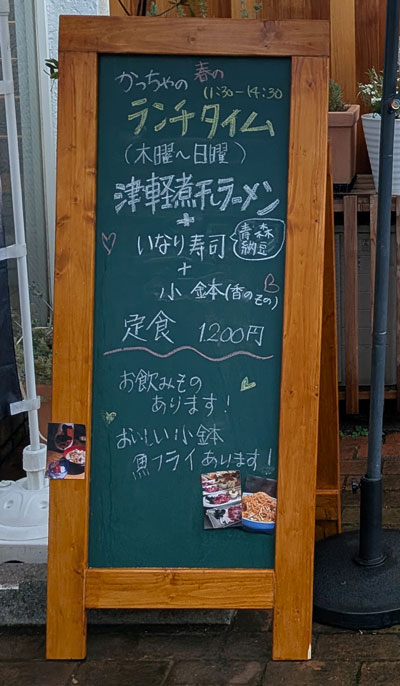 かっちゃの春の
11:30-14:30
ランチタイム
(木曜〜日曜)
津軽煮干しラーメン
+
いなり寿司
青森
納豆
+
小鉢(香のもの)
定食 1200円
お飲みもの
あります!
おいしい小鉢
魚フライあります!